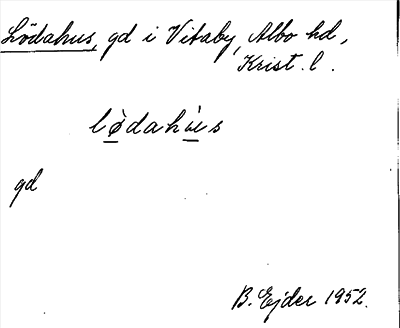 Lödahus, gd i Vitaby, Albo hd,
Krist. l.
lø̀dahùs
gd
B. Ejder 1952.